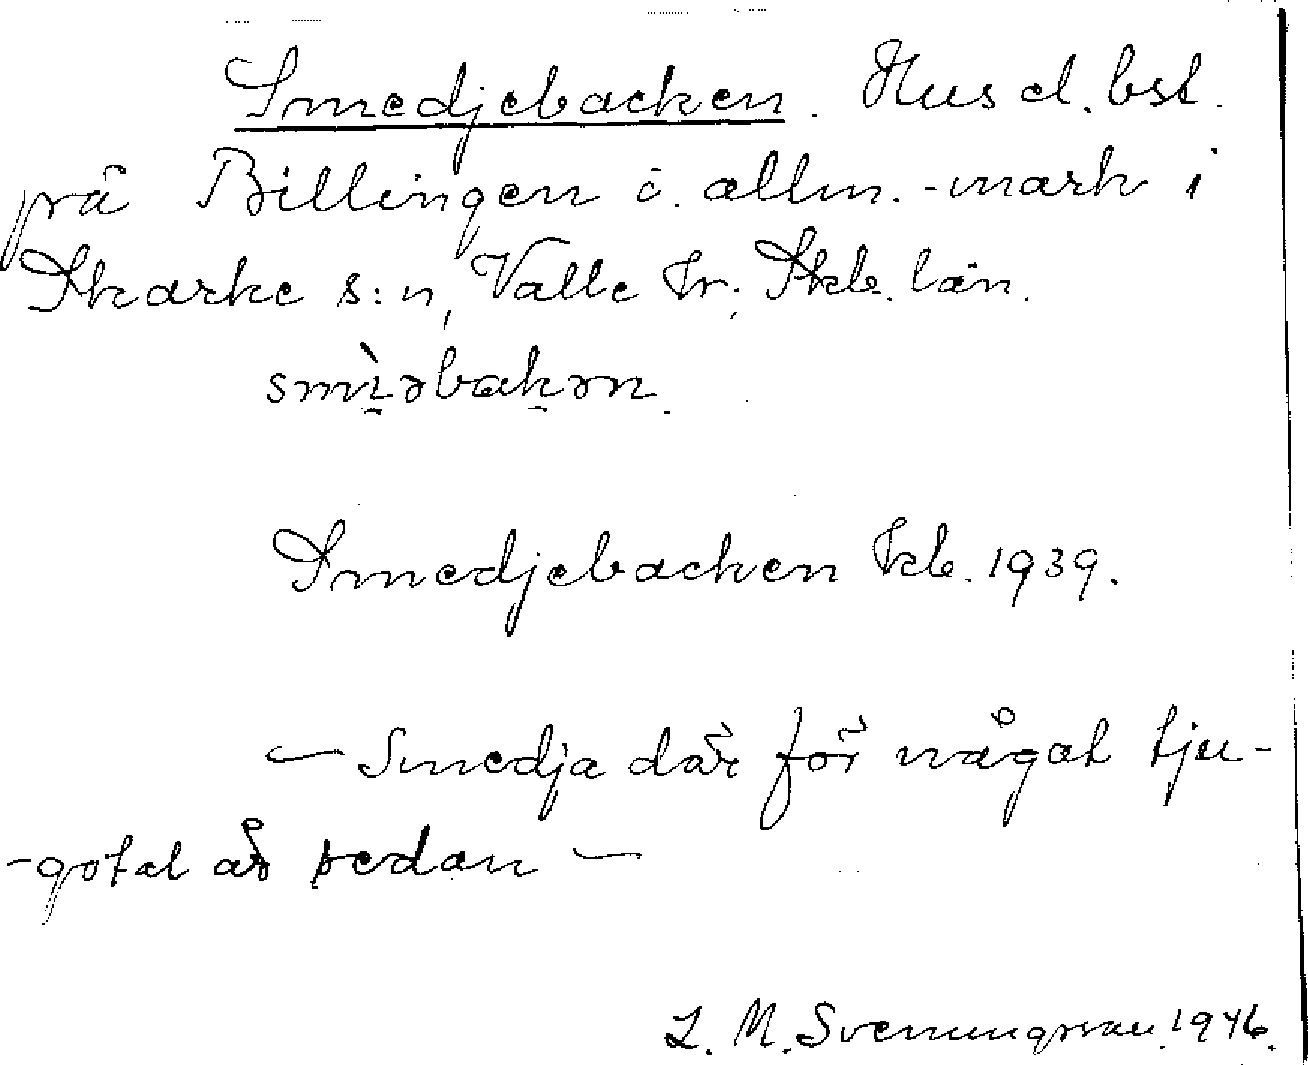 Smedjebacken. Hus el. bst.
på Billingen å. allm.-mark i
Skarke s:n, Valle hr; Skb. län.
smìəbakən.
Smedjebacken Ekb. 1939.
— Smedja där för något tju-
-gotal år sedan —
L. M. Svenungsson. 1946.